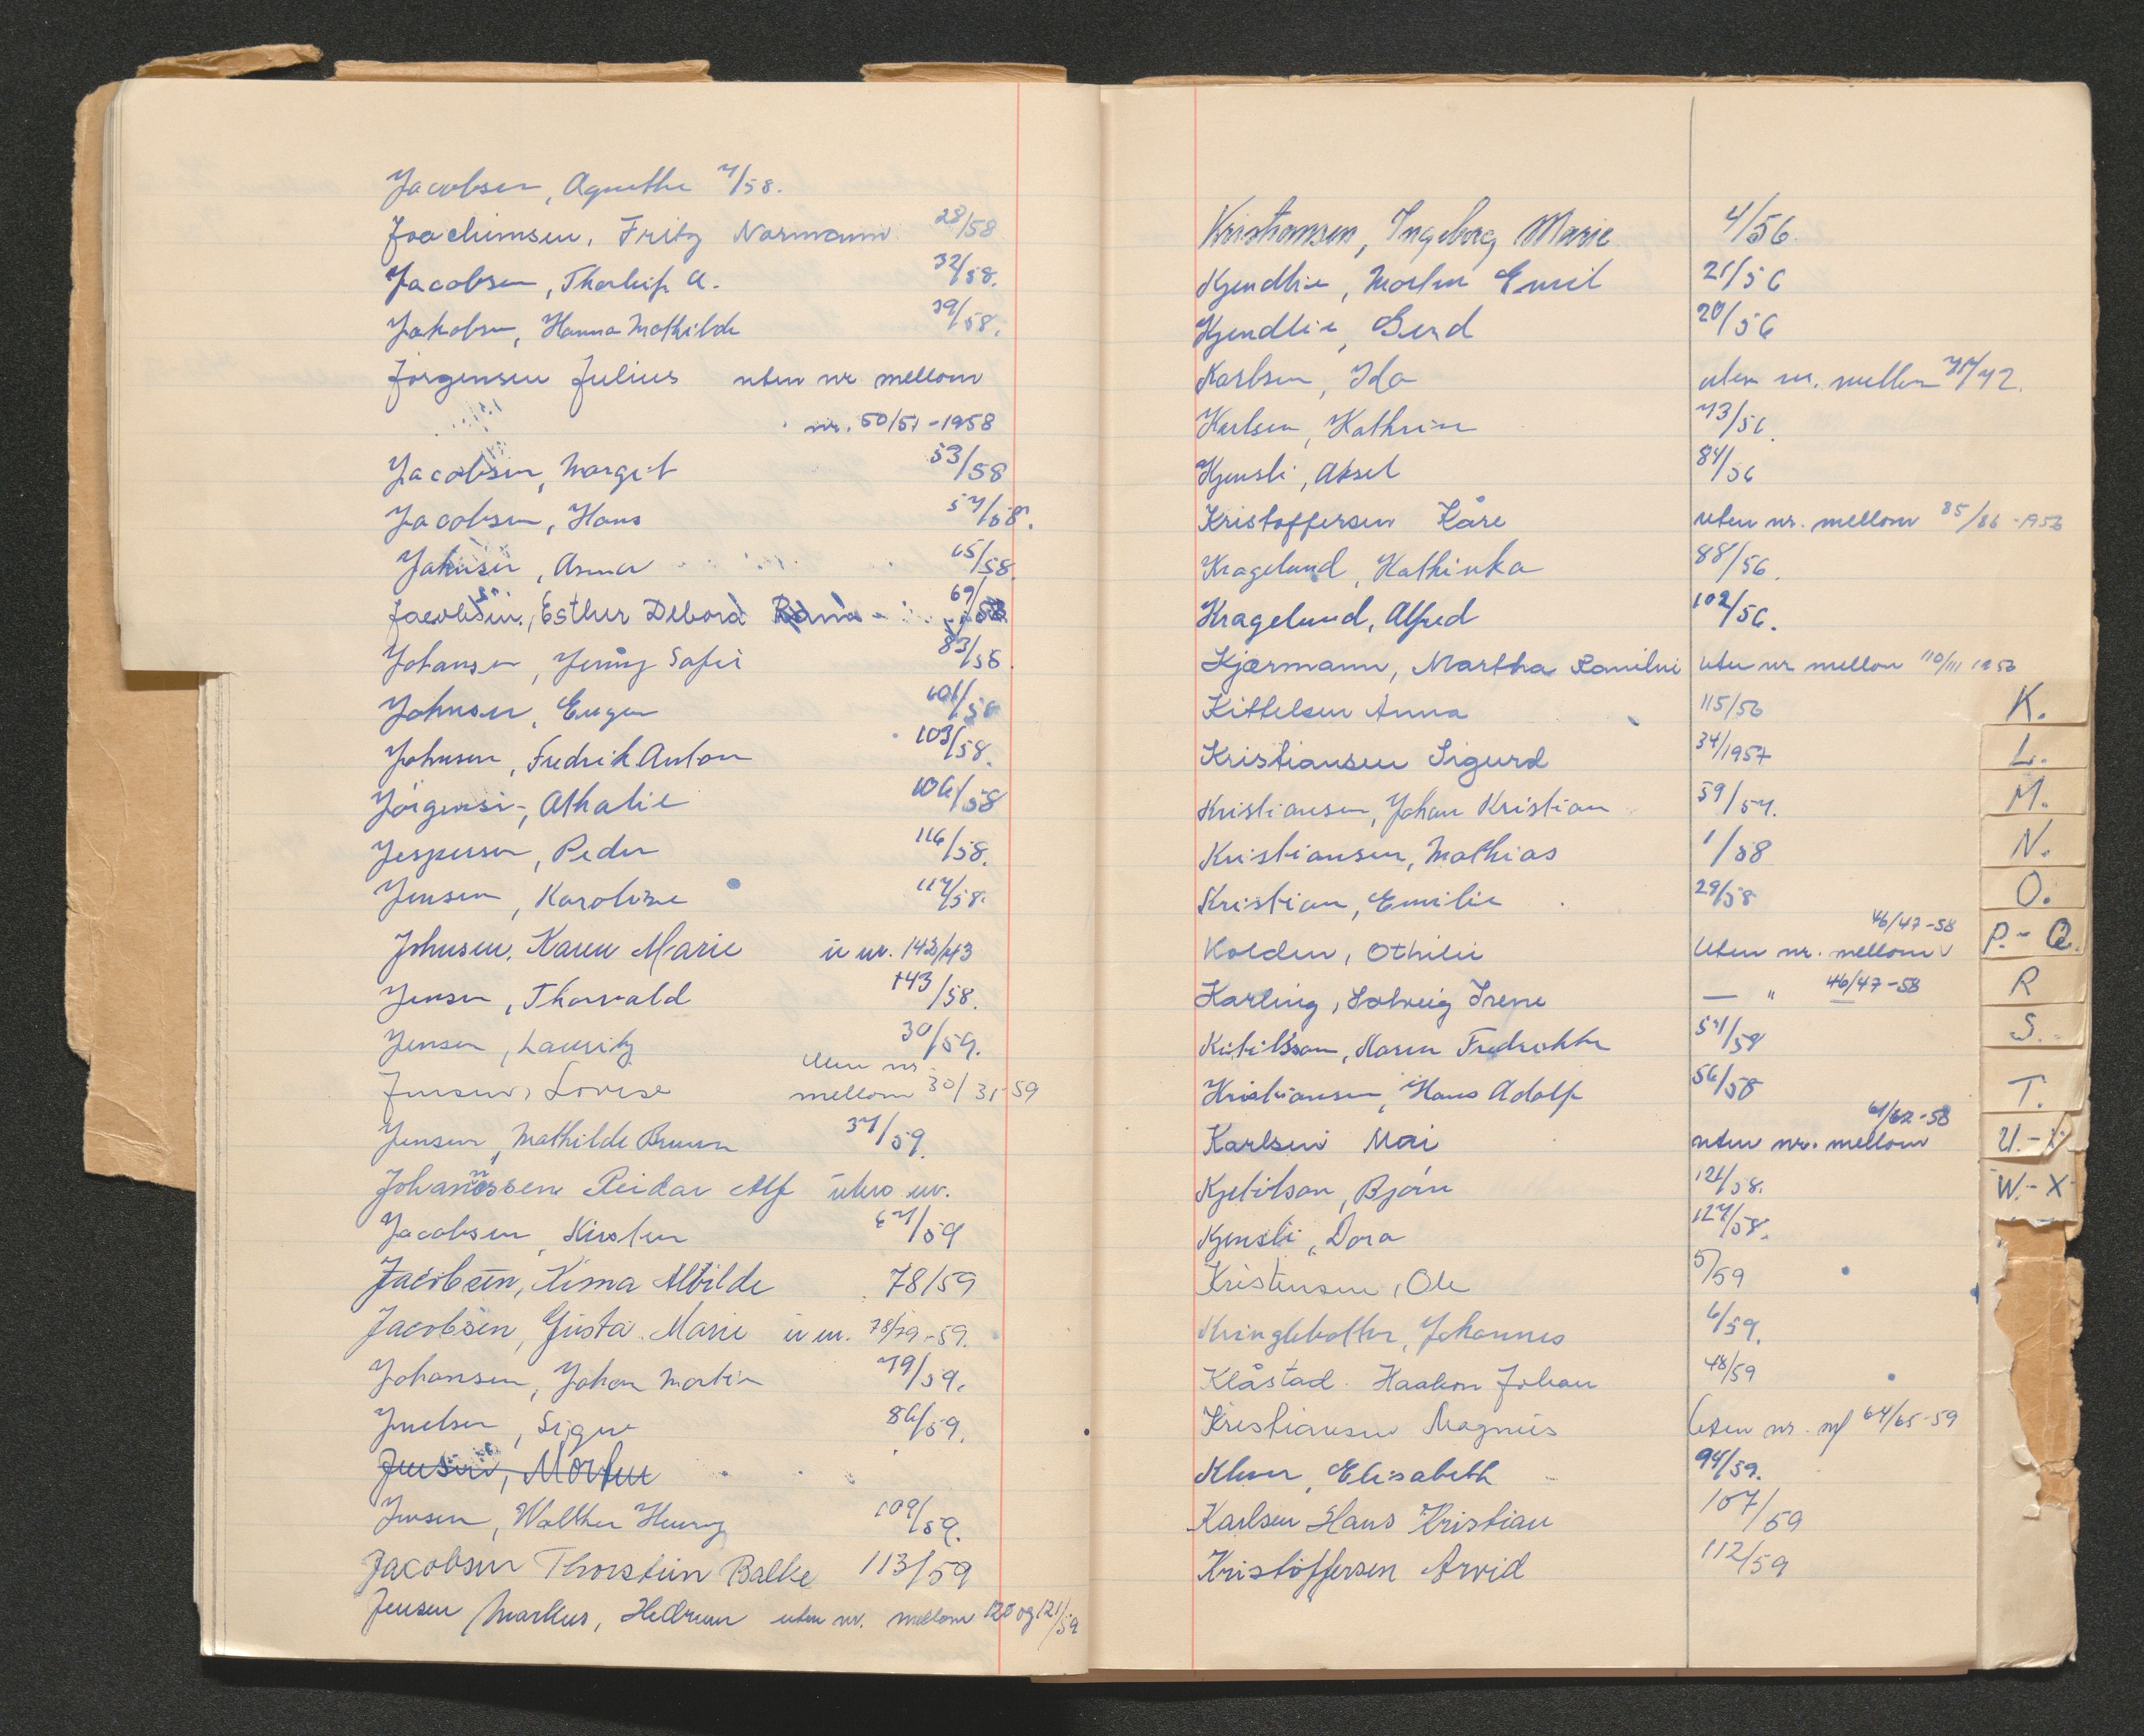 Jacobsen, Agnethe 7/58.
Joachimsen, Fritz Normann 28/58
Jacobsen, Thorleif A. 32/58.
Jakobsen, Hanna Mathilde 39/58.
Jörgensen Julius uten nr mellom
nr. 50/51-1958
Jacobsen, Margit 53/58
Jacobsen, Hans 57/58.
Johnsen, Anna 65/58.
Jacobsen, Esther Debora 69/58
Johansen, Jenny Sofie 83/58.
Johnsen, Eugen 101/58
Johnsen, Fredrik Anton 103/58.
Jörgensen, Athalie 106/58
Jespersen, Peder 116/58.
Jensen, Karoline 117/58.
Johnsen, Karen Marie u nr. 142/143
Jensen, Thorvald 143/58.
Jensen, Lauritz 30/59.
Uten nr
Jensen, Lovise mellom 30/31-59
Jensen, Mathilde Bruun 37/59.
Johannessen Reidar Alf uten nr.
Jacobsen, Kirsten 67/59
Jacobsen, Kisma Albilde 78/59
Jacobsen, Gusta Marie u nr. 78/79-59.
Johansen, Johan Martin 79/59.
Juelsen, Signe 86/59.
Jensen, Morten
Jensen, Walther Henry 109/59.
Jacobsen Thorstein Balke 113/59
Jensen Markus, Hedrum uten nr. mellom 120 og 121/59
Kristiansen, Ingeborg Marie 4/56.
Kjendlie, Morten Emil 21/56
Kjendlie, Gerd 20/56
Karlsen, Ida uten nr. mellom 41/42.
Karlsen, Kathrine 73/56.
Kjensli, Aksel 84/56
Kristoffersen Kåre uten nr. mellom 85/86-1956
Kragelund, Kathinka 88/56.
Kragelund, Alfred 102/56.
Kjærmann, Martha Ramilni uten nr mellom 110/111 1956
Kittelsen Anna 115/56
Kristiansen Sigurd 34/1957
Kristiansen, Johan Kristian 59/57.
Kristiansen, Mathias 1/58
Kristian, Emilie 29/58
46/47-58
Kolden, Othilie Uten nr. mellom
Karling, Solveig Irene — " 46/47-58
Ketilsson, Maren Fredrikke 54/58
Kristiansen, Hans Adolf 56/58
61/62-58
Karlsen Mai uten nr. mellom
Kjetilson, Bjørn 121/58.
Kjensli, Dora 127/58.
Kristensen, Ole 5/59
Kringlebotten, Johannes 6/59.
Klåstad Haakon Johan 48/59
Kristiansen Magnus Uten nr. ml 64/65-59
Klever, Elisabeth 94/59.
Karlsen Hans Kristian 107/59
Kristoffersen Arvid 112/59
K.
L.
M.
N.
O.
P.-Q.
R
S.
T.
U.-V
W.-X